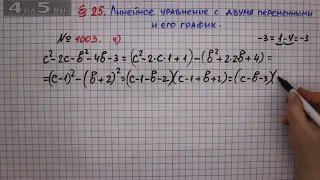 4 DA 5.RU
§ 25. Линейное уравнение с двумя переменными
и его график.
№ 1003. ч) -3 = 1-4 = -3
c²-2c-b²-4b-3 = (c²-2·c·1+1)-(b²+2·2b+4) =
=(c-1)²-(b+2)²=(c-1-b-2)(c-1+b+2)=(c-b-3)(